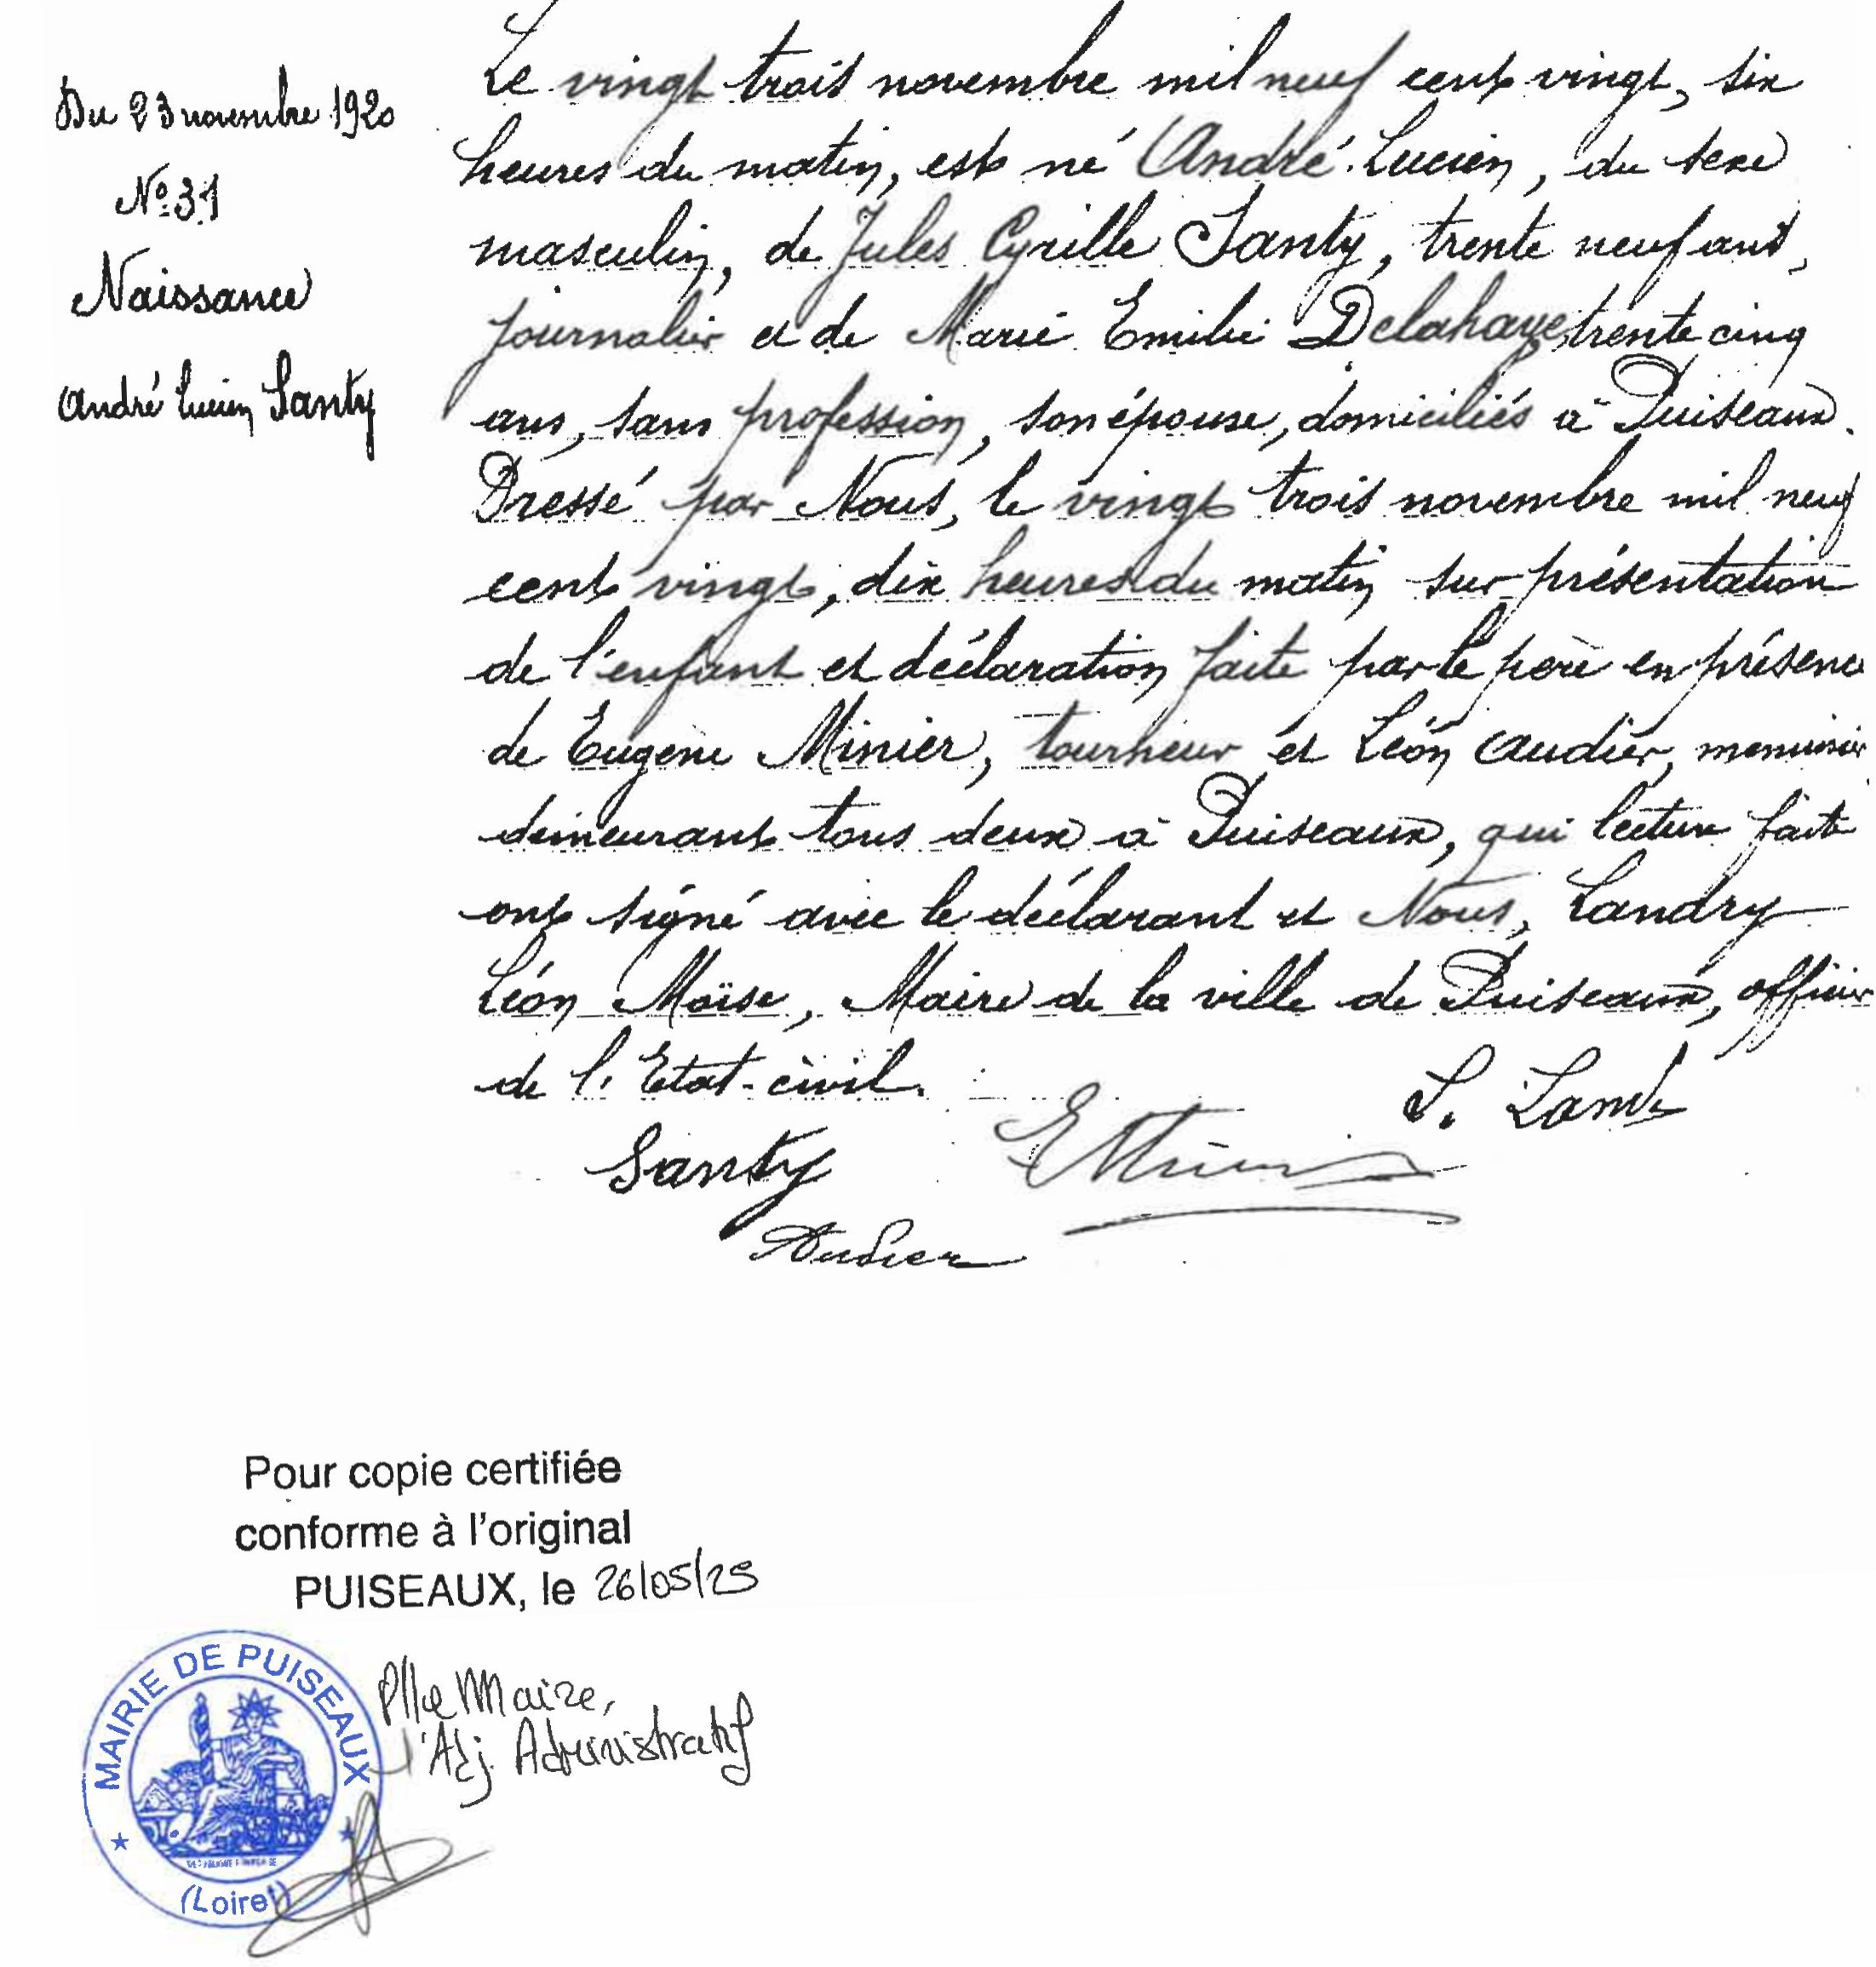 Du 23 novembre 1920
N° 31
Naissance
André Lucien Santy
Le vingt trois novembre mil neuf cent vingt, six
heures du matin, est né André Lucien, du sexe
masculin, de Jules Cyrille Santy, trente neuf ans,
journalier et de Marie Emilie Delahaye, trente cinq
ans, sans profession, son épouse, domiciliés à Puiseaux.
Dressé par Nous, le vingt trois novembre mil neuf
cent vingt, dix heures du matin sur présentation
de l'enfant et déclaration faite par le père en présence
de Eugène Minier, tourneur et Léon Audier, menuisier
demeurant tous deux à Puiseaux, qui lecture faite
ont signé avec le déclarant et Nous, Landry
Léon Moïse, Maire de la ville de Puiseaux, officier
de l'Etat-civil.
L. Landry
Santy
Audier
Pour copie certifiée
conforme à l'original
PUISEAUX, le 26/05/25
MAIRIE DE PUISEAUX
(Loiret)
P/le Maire,
l'Adj. Administratif